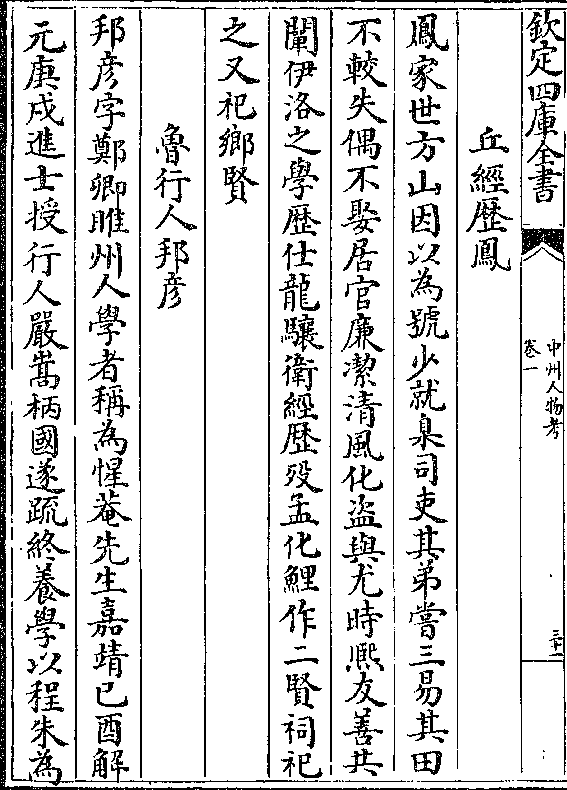 欽定四庫全書
中州人物考
卷一
三十二
丘經歴鳳
鳳家世方山因以為號少就臬司吏其弟嘗三易其田
不較失偶不娶居官亷潔清風化盗與尤時熈友善共
闡伊洛之學歴仕龍驤衛經歴殁孟化鯉作二賢祠祀
之又祀鄉賢
魯行人邦彦
邦彦字鄭卿睢州人學者稱為惺菴先生嘉靖已酉解
元庚戌進士授行人嚴嵩柄國遂疏終養學以程朱為